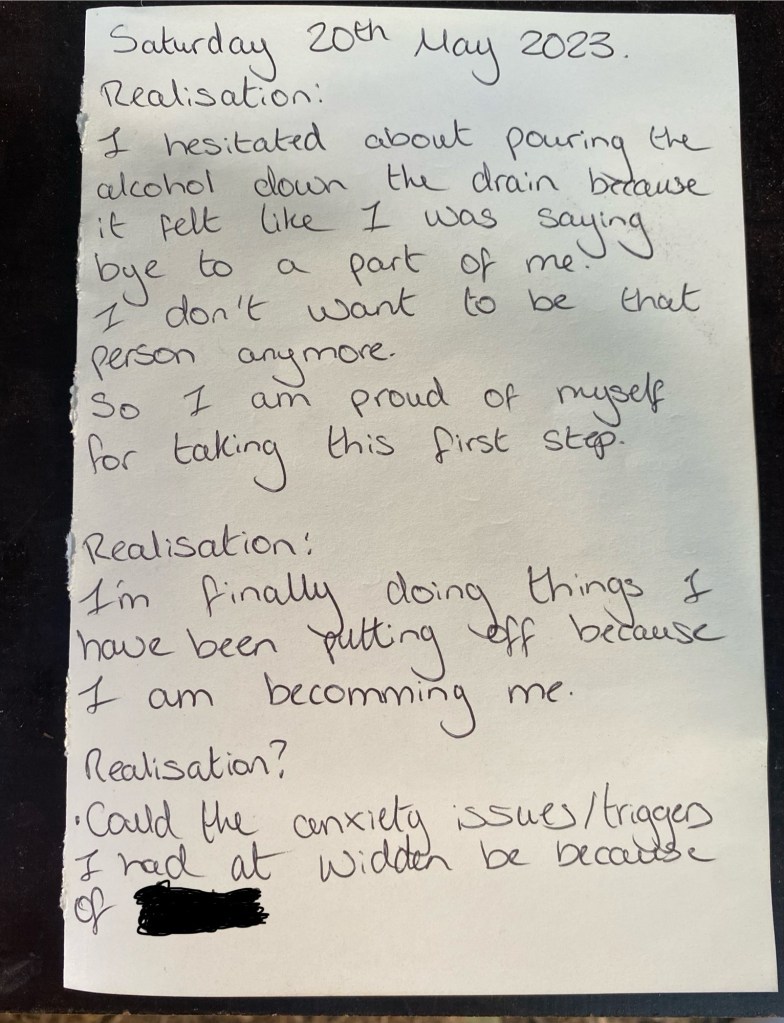 Saturday 20th May 2023.
Realisation:
I hesitated about pouring the
alcohol down the drain because
it felt like I was saying
bye to a part of me.
I don't want to be that
person anymore.
So I am proud of myself
for taking this first step.
Realisation:
I'm finally doing things I
have been putting off because
I am becomming me.
Realisation?
·Could the anxiety issues/triggers
I had at Widden be because
of